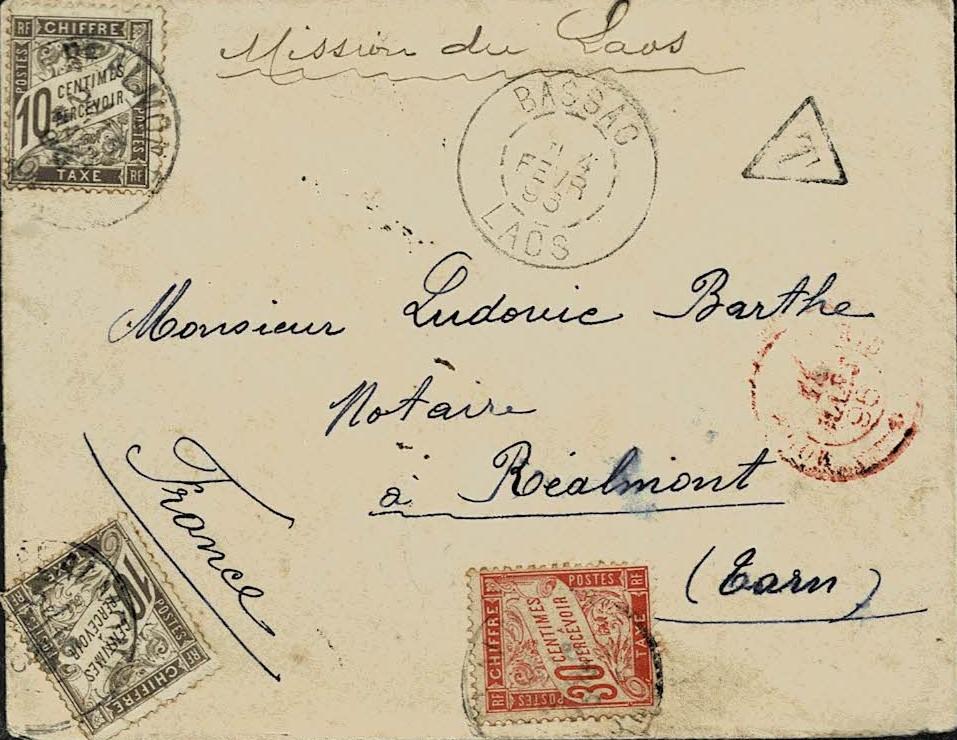 Mission du Laos
RF CHIFFRE RF
POSTES
10 CENTIMES
PERCEVOIR
POSTES
TAXE RF
BASSAC
4
FEVR
LAOS
T
Monsieur Ludovic Barthe
Notaire
à Réalmont
(Tarn)
France
POSTES RF
RF CHIFFRE
30 CENTIMES
PERCEVOIR
TAXE
RF POSTES
RF
POSTES
10 CENTIMES
PERCEVOIR
CHIFFRE
RF